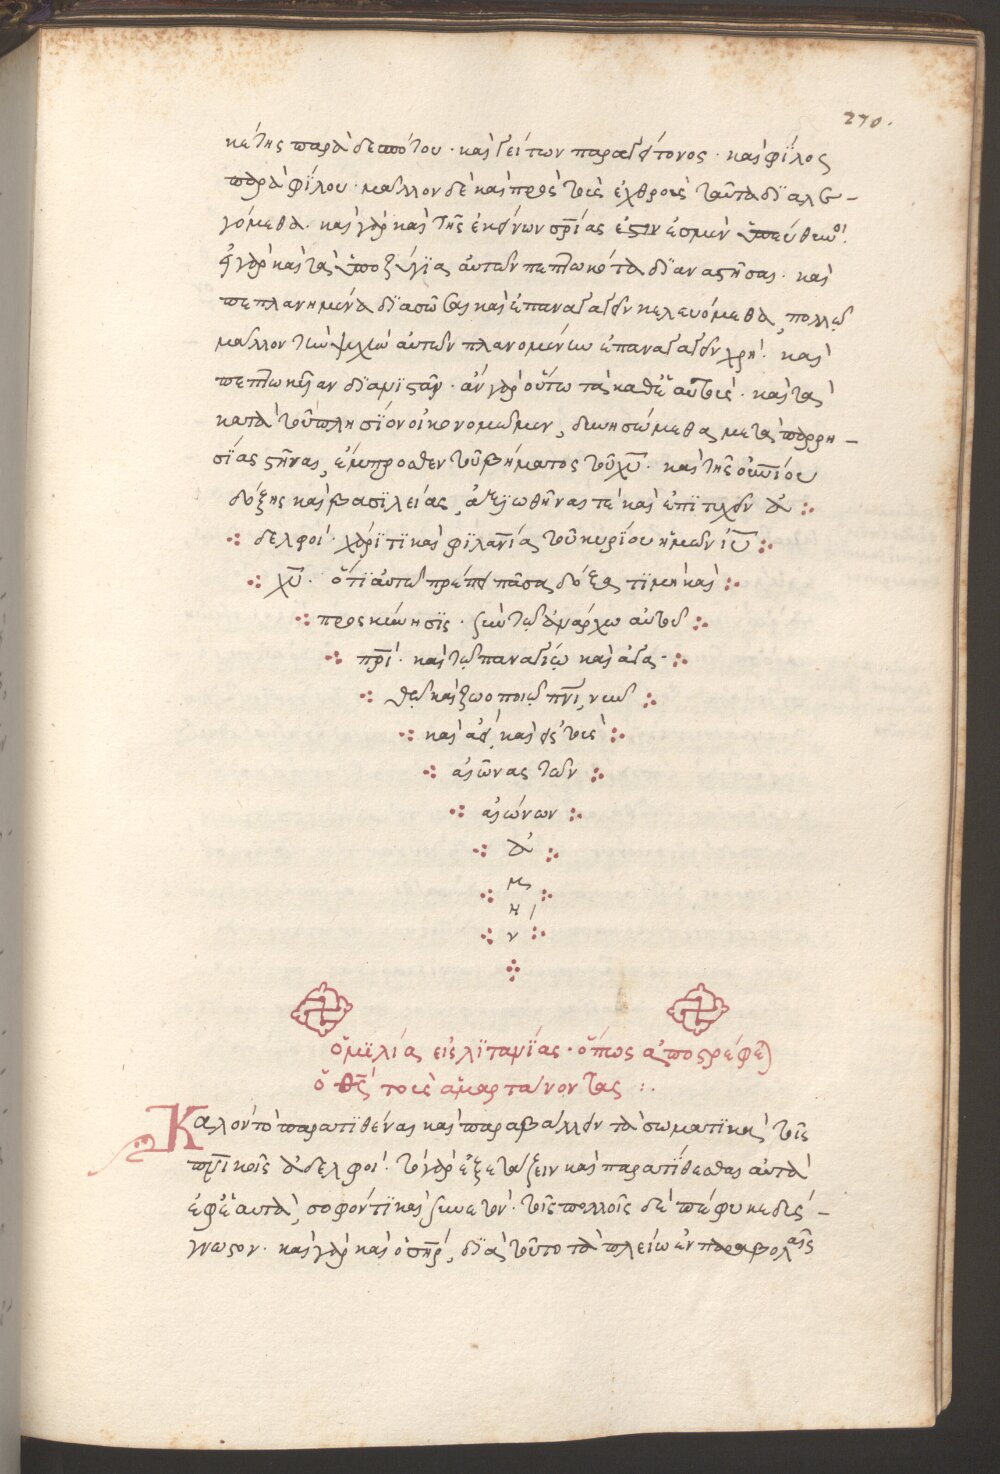 270.
κέτης παρὰ δεσπότου· καὶ γείτων παρὰ γείτονος· καὶ φίλος
παρὰ φίλου· μᾶλλον δὲ καὶ πρὸς τοὺς ἐχθροὺς ταῦτα διαλε–
γόμεθα. καὶ γὰρ καὶ τῆς ἐκείνων σρίας ἐσμὲν ὑπεύθυνοι.
εἰ γὰρ καὶ τὰ ὑποζύγια αὐτῶν πεπτωκότα διαναστῆσαι· καὶ
πεπλανημένα διασῶσαι καὶ ἐπαναγαγεῖν κελευόμεθα, πολλῷ
μᾶλλον τὴν ψυχὴν αὐτῶν πλανομένην ἐπαναγαγεῖν χρή. καὶ
πεπτωκυῖαν διαμιστᾶν· ἂν γὰρ οὕτω τὰ καθ' ἑαυτοὺς· καὶ τὰ
κατὰ τοῦ πλησίον οἰκονομῶμεν, δυνησώμεθα μετὰ παρρη–
σίας στῆναι, ἔμπροσθεν τοῦ βήματος τοῦ χυ. καὶ τῆς
δόξης καὶ βασιλείας, ἀξιωθῆναί τε καὶ ἐπιτυχεῖν ἀ
δελφοί· χάριτι καὶ φιλανίας τοῦ κυρίου ἡμῶν ιυ
χυ. ὅτι αὐτῷ πρέπει πᾶσα δόξα τιμὴ καὶ
προσκύνησις· σὺν τῷ ἀνάρχω αὐτοῦ
πρι· καὶ τῷ παναγίῳ καὶ ἀγα
θῷ καὶ ζωοποιῷ πνι, νῦν
καὶ ἀεὶ καὶ εἰς τοὺς
αἰῶνας τῶν
αἰώνων
ἀ
μ
ή
ν
ὁμιλία εἰς λιτανίας· ὅπως ἀποστρέφει
ὁ θς τοὺς ἁμαρτάνοντας :.
Καλὸν τὸ παρατιθέναι καὶ παραβάλλειν τὰ σωματικὰ τοῖς
πνικοῖς ἀδελφοί. τὸ γὰρ ἐξετάζειν καὶ παρατίθεσθαι αὐτὰ
ἐφ' ἑαυτὰ, σοφόν τι καὶ συνετόν· τοῖς πολλοῖς δὲ πέφυκε δυσ–
γνωστον· καὶ γὰρ καὶ ὁ σηρ, διὰ τοῦτο τὰ πλείω ἐν παραβολαῖς